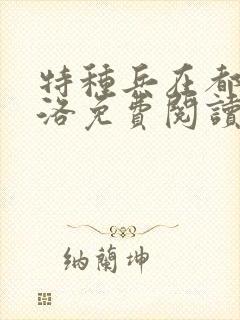 特種兵在都
洛免費閱讀
納蘭坤